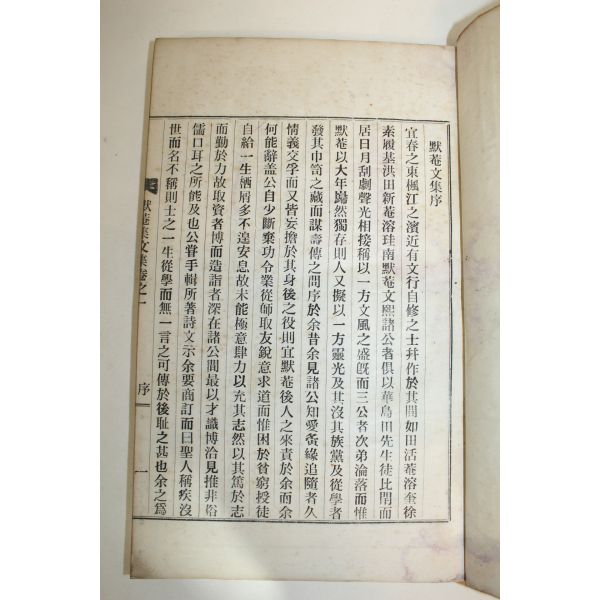 默菴文集序
宜春之東楓江之濱近有文行自修之士幷作於其間如田活菴溶奎徐
素履基洪田新菴溶珪南默菴文熙諸公者俱以華島田先生徒比閈而
居日月刮劘聲光相接稱以一方文風之盛旣而三公者次弟淪落而惟
默菴以大年巋然獨存則人又擬以一方靈光及其沒其族黨及從學者
發其巾笥之藏而謀壽傳之問序於余昔余見諸公知愛夤緣追隨者久
情義交孚而又皆妄擔於其身後之役則宜默菴後人之來責於余而余
何能辭盖公自少斷棄功令業從師取友銳意求道而惟困於貧窮授徒
自給一生栖屑多不遑安息故未能極意肆力以充其志然以其篤於志
而勤於力故取資者博而造詣者深在諸公間最以才識博洽見推非俗
儒口耳之所能及也公甞手輯所著詩文示余要商訂而曰聖人稱疾沒
世而名不稱則士之一生從學而無一言之可傳於後恥之甚也余之爲
默菴集文集卷之一
序
一